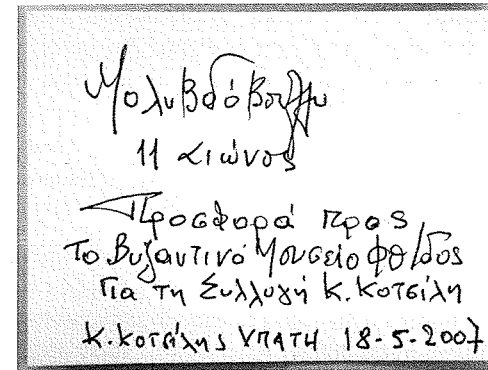 Μολυβδόβουλλο
11 αιώνος
Προσφορά προς
Το Βυζαντινό Μουσείο Φθ/δος
Για τη Συλλογή Κ. Κοτσίλη
Κ. Κοτσίλης ΥΠΑΤΗ 18-5-2007